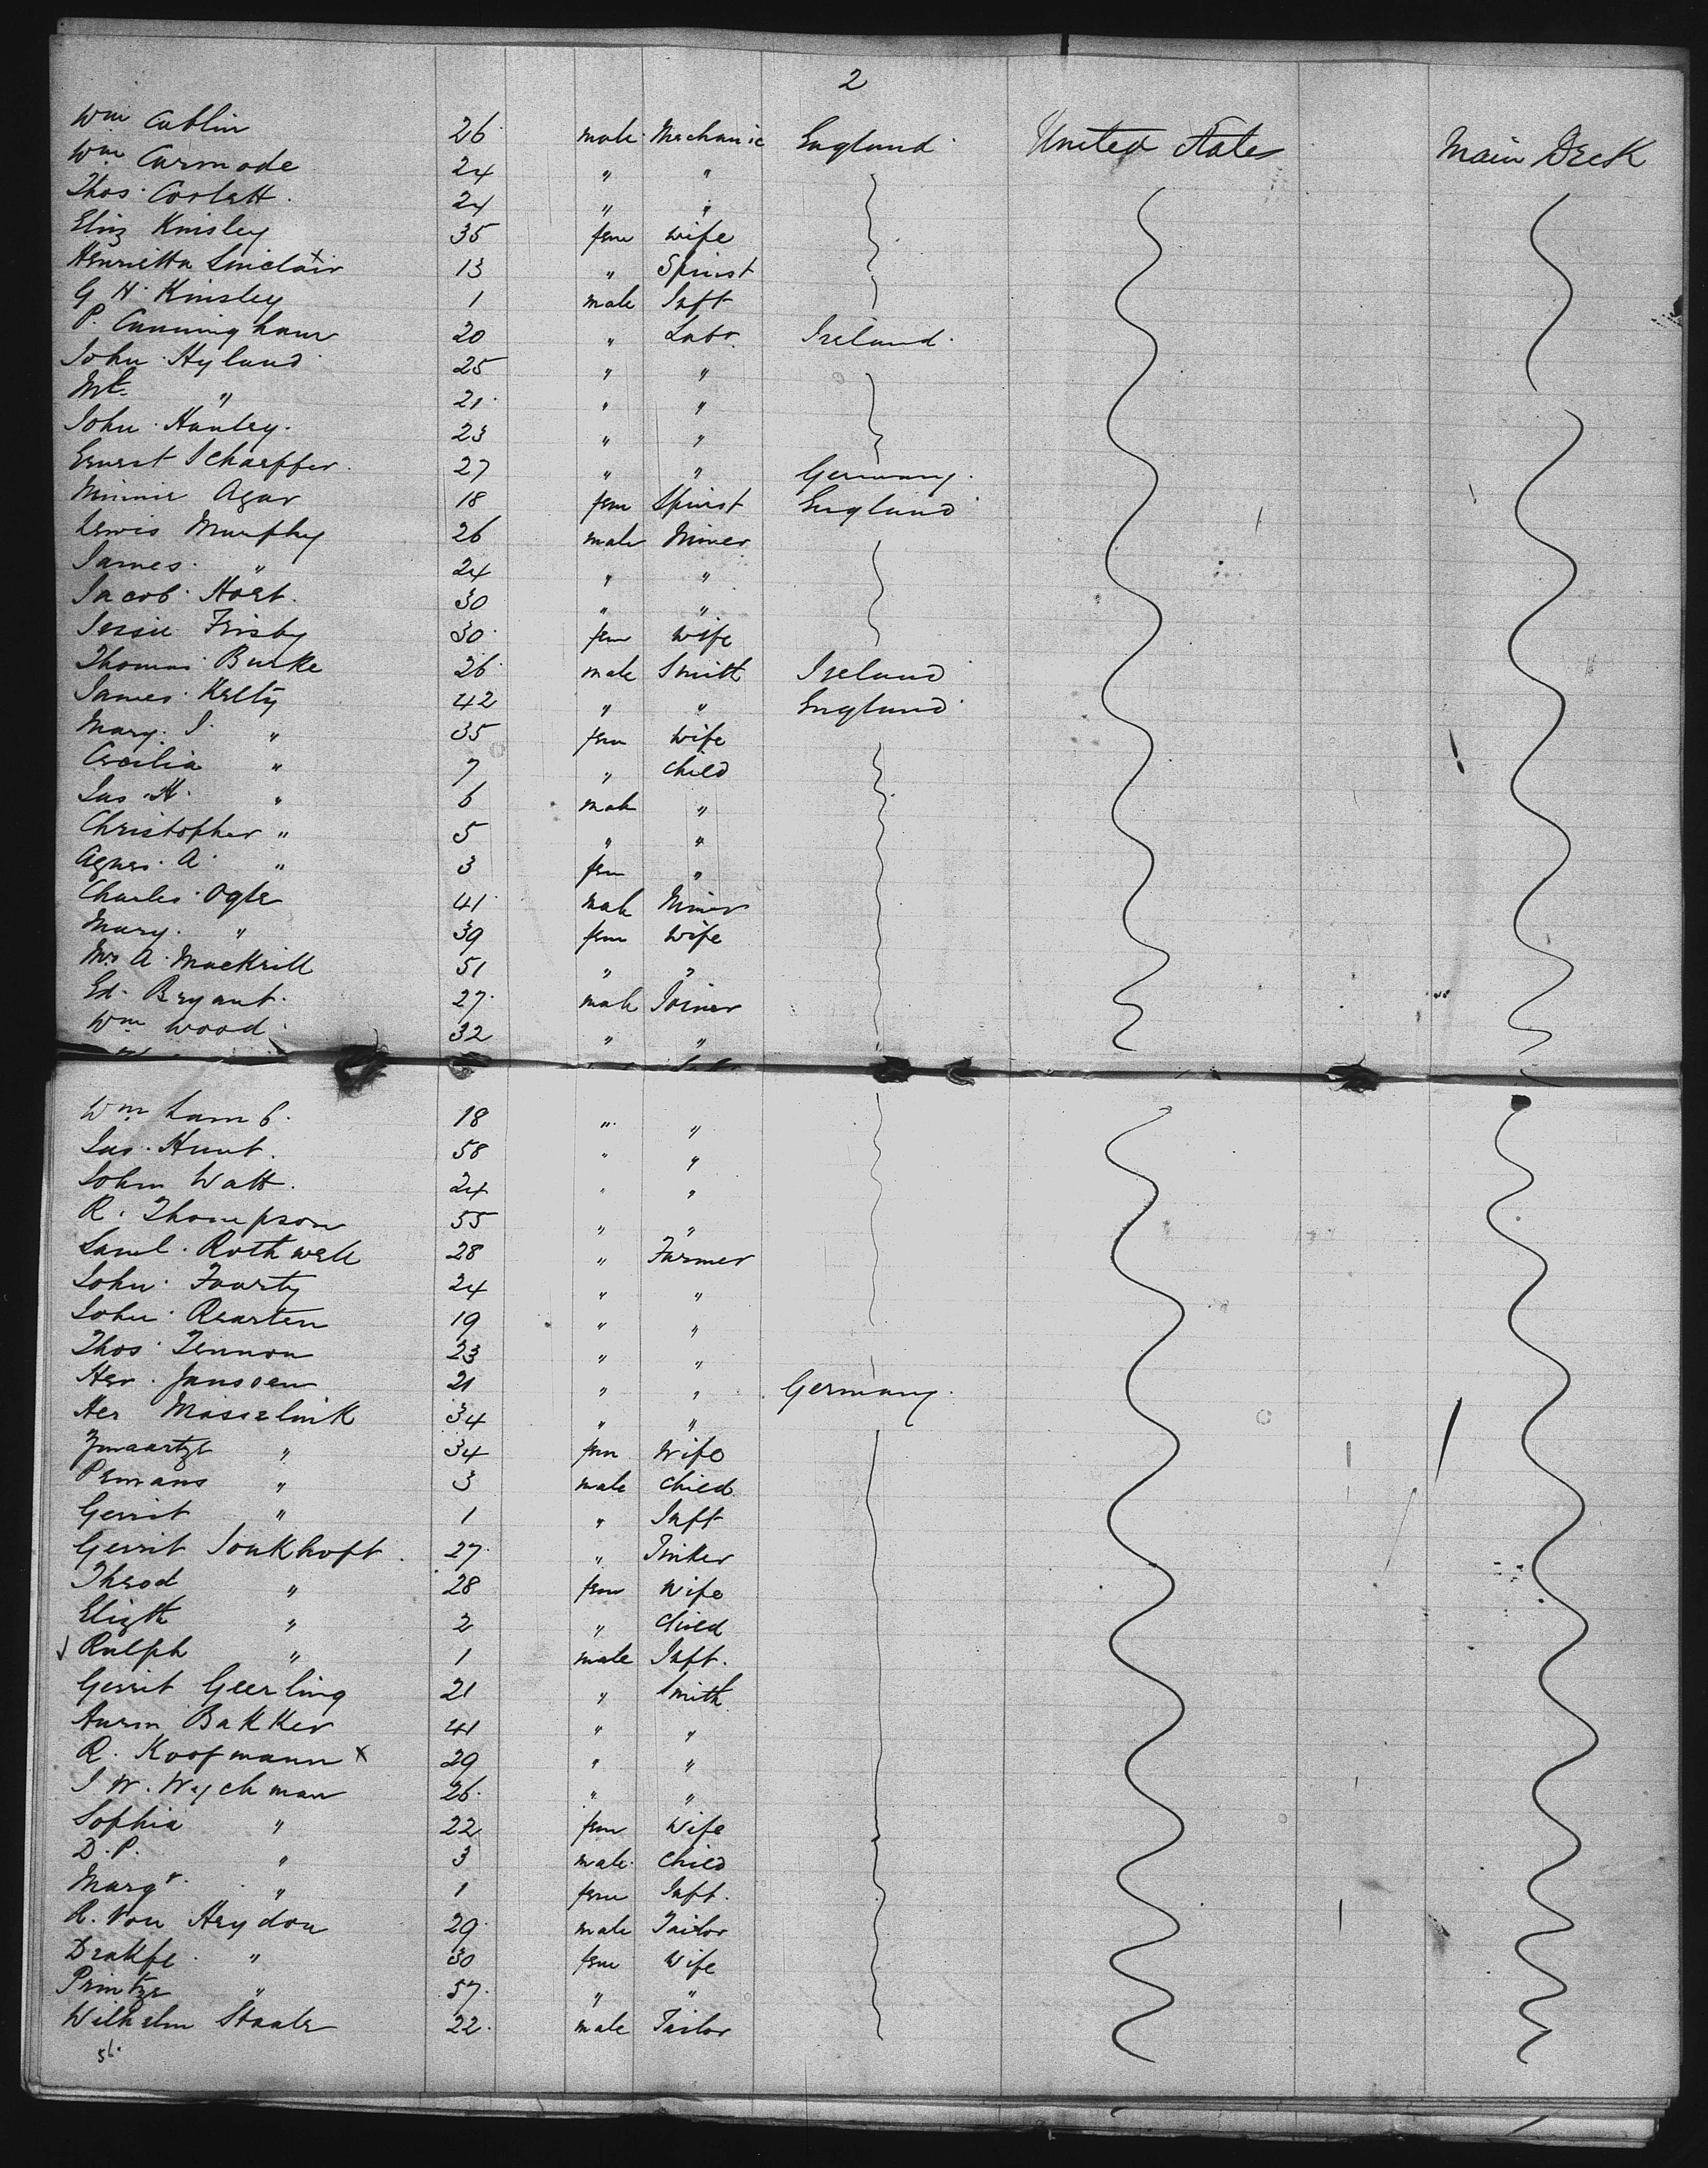 2
Wm Cublin 26 male Mechanic England United States Main Deck
Wm Curmode 24 " "
Thos Corlett 24 " "
Eliz Kinsley 35 fem Wife
Henrietta Sinclair x 13 " Spinst
G H Kinsley 1 male Inft
P. Cunningham 20 " Labr Ireland
John Hyland 25 " "
" 21 " "
John Hanley 23 " "
Ernest Schaeffer 27 " " Germany
Minnie Agar 18 fem Spinst England
Lewis Murphy 26 male Miner
James " 24 " "
Jacob Hoet 30 " "
Jessie Frisby 30 fem Wife
Thomas Burke 26 male Smith Ireland
James Kelty 42 " " England
Mary J " 35 fem Wife
Cecilia " 7 " Child
Jas H " 6 male "
Christopher " 5 " "
Agnes A " 3 fem "
Charles Ogle 41 male Miner
Mary " 39 fem Wife
Mrs A Mackrill 51 " "
Ed Bryant 27 male Joiner
Wm Wood 32 " "
Wm Lamb 18 " "
Jas Hunt 58 " "
John Watt 24 " "
R. Thompson 55 " "
Saml Rothwell 28 " Farmer
John Foarty 24 " "
John Rearten 19 " "
Thos Lennon 23 " "
Her Janssen 21 " " Germany
Her Masselink 34 " "
Zwaartze " 34 fem Wife
Pemans " 3 male Child
Gerrit " 1 " Inft
Gerrit Jonkhoft 27 " Tinker
Threod " 28 fem Wife
Elizth " 2 " Child
Ralph " 1 male Inft.
Gerrit Geerling 21 " Smith
Bakker 41 " "
R. Koofmann x 29 " "
J W. Wychman 26 " "
Sophia " 22 fem Wife
D. P. " 3 male Child
Margt " 1 fem Inft.
R. Von Heydon 29 male Tailor
" 30 fem Wife
Printze " 57 " "
Wilhelm Staale 22 male Tailor
56